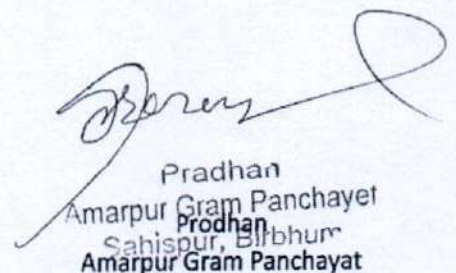 Pradhan
Amarpur Gram Panchayet
Prodhan
Sahispur, Birbhum
Amarpur Gram Panchayat